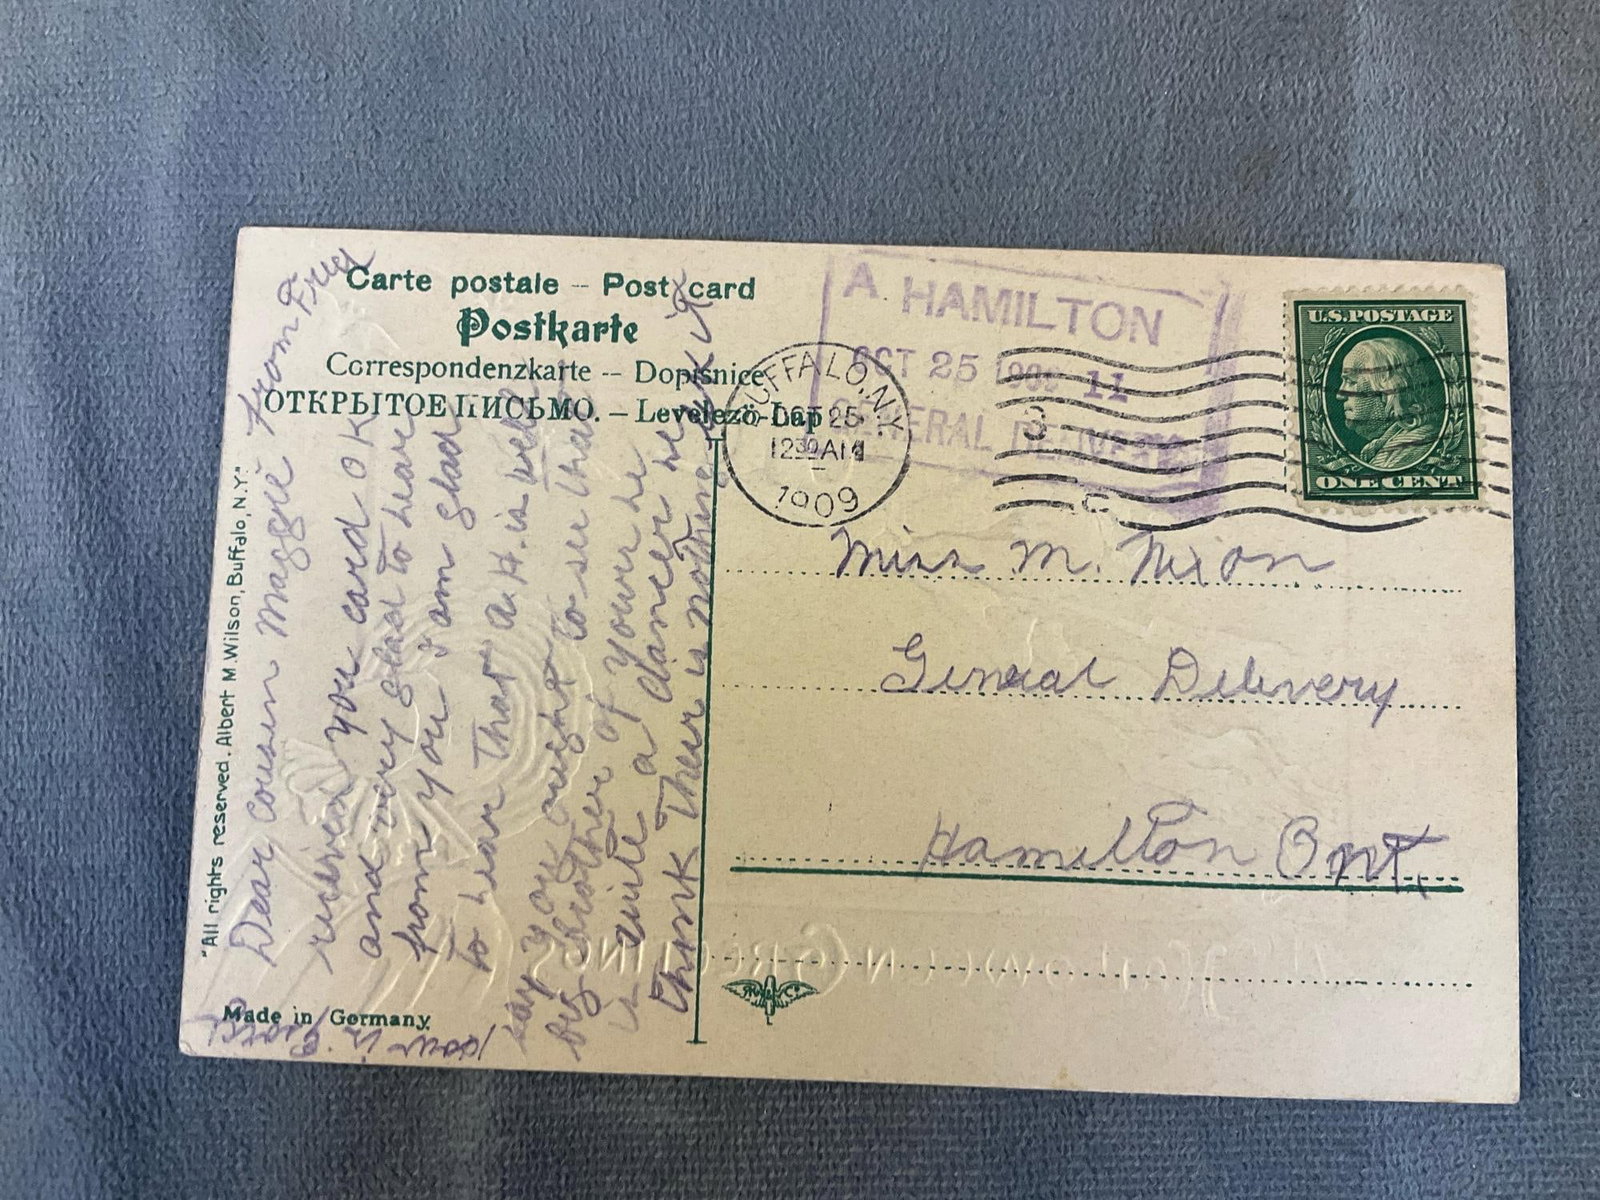 Carte postale – Post card
Postkarte
Correspondenzkarte – Dopisnice
ОТКРЫТОЕ ПИСЬМО. – Levelező-Lap
"All rights reserved. Albert M. Wilson, Buffalo, N.Y."
Made in Germany
A. HAMILTON
OCT 25 1909 11
GENERAL DELIVERY
BUFFALO, N.Y.
OCT 25
12 30 AM
1909
3
C
U.S. POSTAGE
ONE CENT
Miss M. Nixon
General Delivery
Hamilton Ont.
Dear cousin Maggie From
recieved you card OK
and very glad to hear
from you I am glad
to hear that a.H. is well
say you ought to see that
big brother of yours he
is quite a dancer he
think their is nothing like it
HALLOWEEN GREETINGS